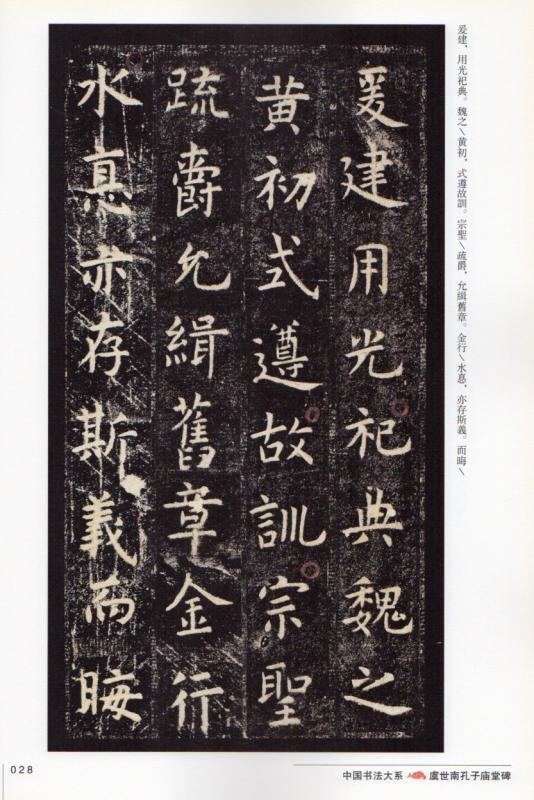 爰建，用光祀典。魏之\黄初，式遵故訓。宗聖\疏爵，允緝舊章。金行\水息，亦存斯義。而晦\
爰建用光祀典魏之
黄初式遵故訓宗聖
疏爵允緝舊章金行
水息亦存斯義而晦
028
中国书法大系 虞世南孔子庙堂碑